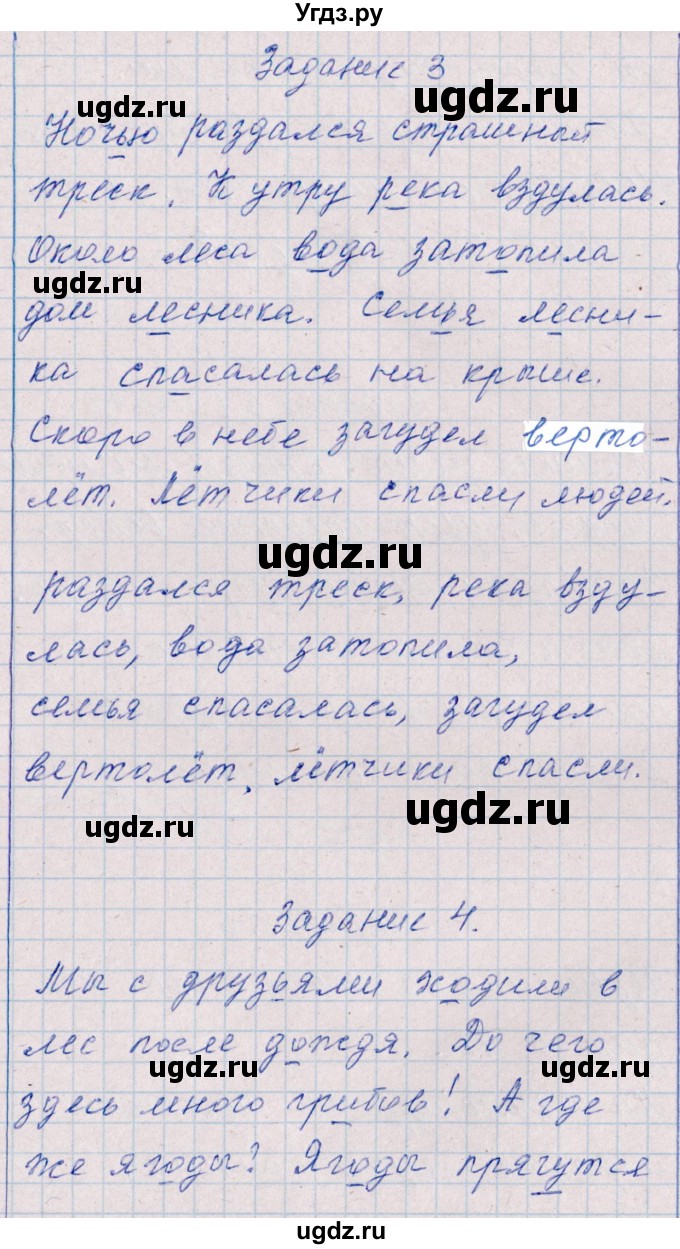 Угдз.ру
Задание 3
ugdz.ru
ugdz.ru
Ночью раздался страшный
треск. К утру река вздулась.
Около леса вода затопила
ugdz.ru
дом лесника. Семья лесни-
ка спасалась на крыше.
Скоро в небе загудел верто-
лёт. Лётчики спасли людей.
ugdz.ru
раздался треск, река взду-
лась, вода затопила,
семья спасалась, загудел
вертолёт, лётчики спасли.
ugdz.ru
ugdz.ru
Задание 4.
Мы с друзьями ходили в
лес после дождя. До чего
ugdz.ru
ugdz.ru
здесь много грибов! А где
же ягоды? Ягоды прячутся
ugdz.ru